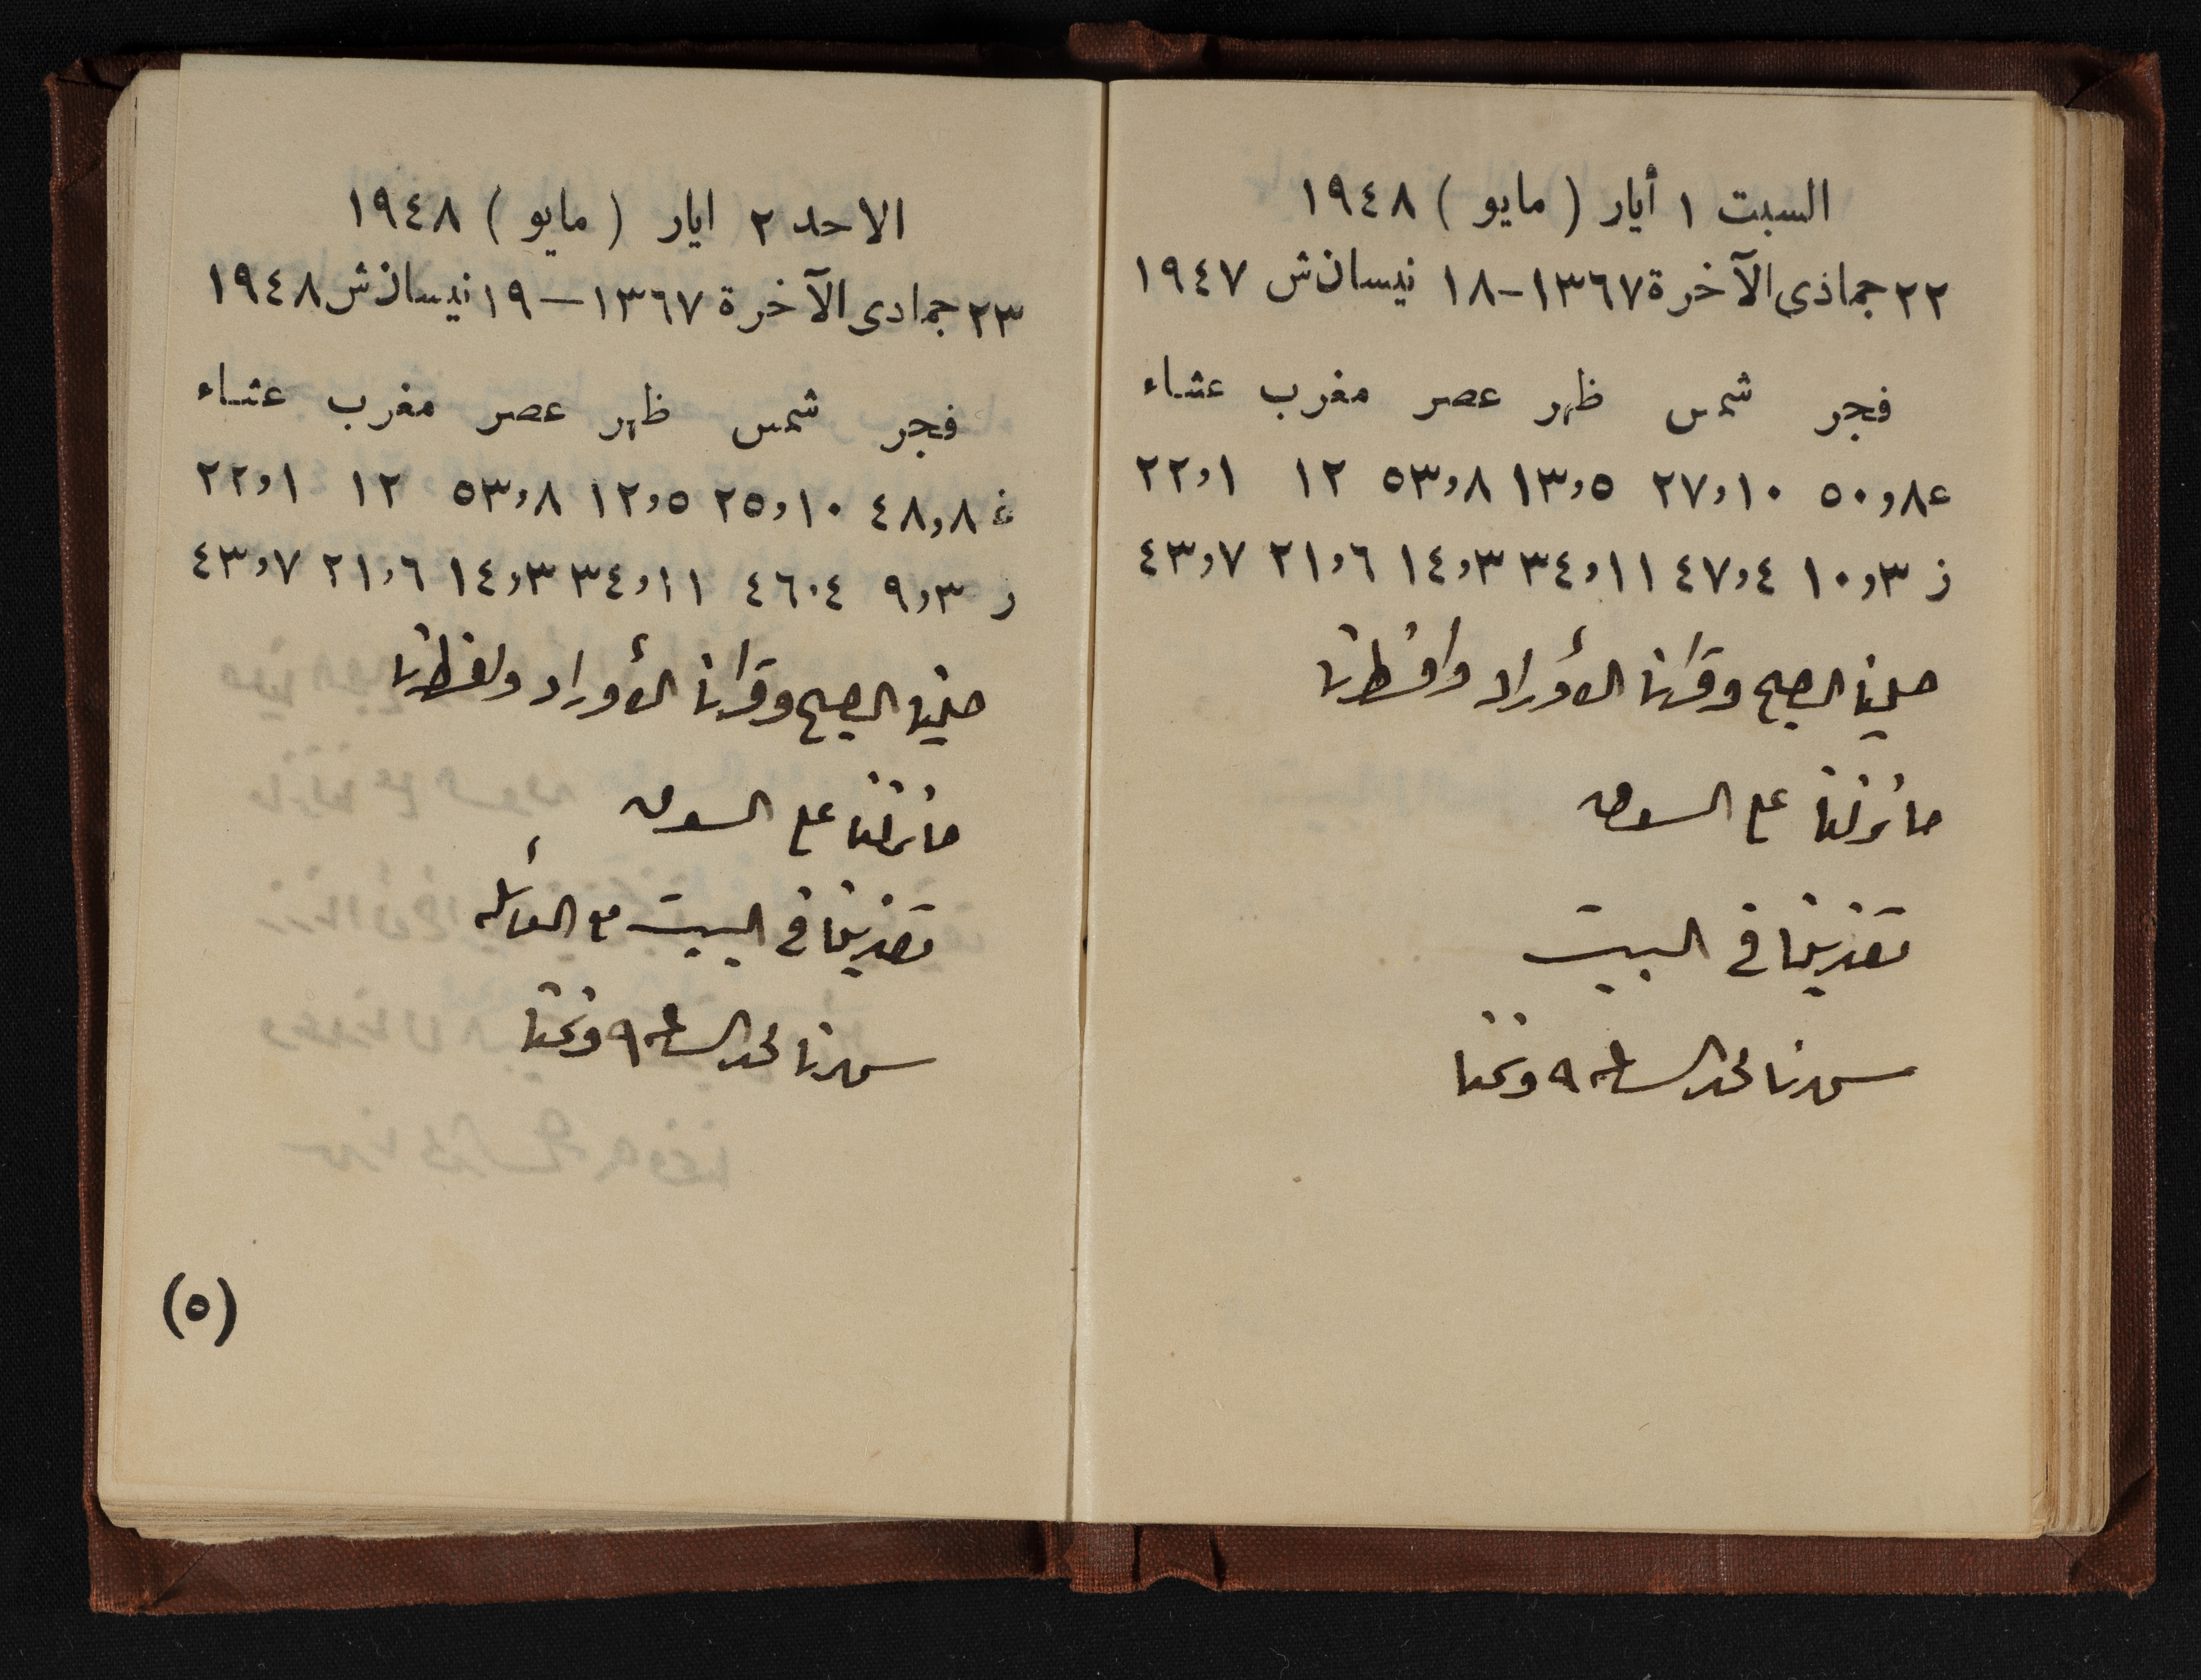 السبت ١ أيار ( مايو ) ١٩٤٨
٢٢ جماذى الآخرة ١٣٦٧-١٨ نيسان ش ١٩٤٧
فجر شمس ظهر عصر مغرب عشاء
ع ٨و٥٠ ١٠و٢٧ ٥و١٣ ٨و٥٣ ١٢ ١و٢٢
ز ٣و١٠ ٤و٤٧ ١١و٣٤ ٣و١٤ ٦و٢١ ٧و٤٣
صلينا الصبح وقرانا الأوراد وافطرنا
مانزلنا على السوق
تغدينا في البيت
سهرنا لحد الساعة ٩ ونمنا
الاحد ٢ ايار ( مايو ) ١٩٤٨
٢٣ جمادى الآخرة ١٣٦٧-١٩ نيسان ش ١٩٤٨
فجر شمس ظهر عصر مغرب عشاء
غ ٨و٤٨ ١٠و٢٥ ٥و١٢ ٨و٥٣ ١٢ ١و٢٢
ز ٣و٩ ٤٦٠٤ ١١و٣٤ ٣و١٤ ٦و٢١ ٧و٤٣
صلينا الصبح وقرانا الأوراد وافطرنا
مانزلنا على السوق
تغدينا في البيت مع العائله
سهرنا لحد الساعة ٩ ونمنا
(٥)